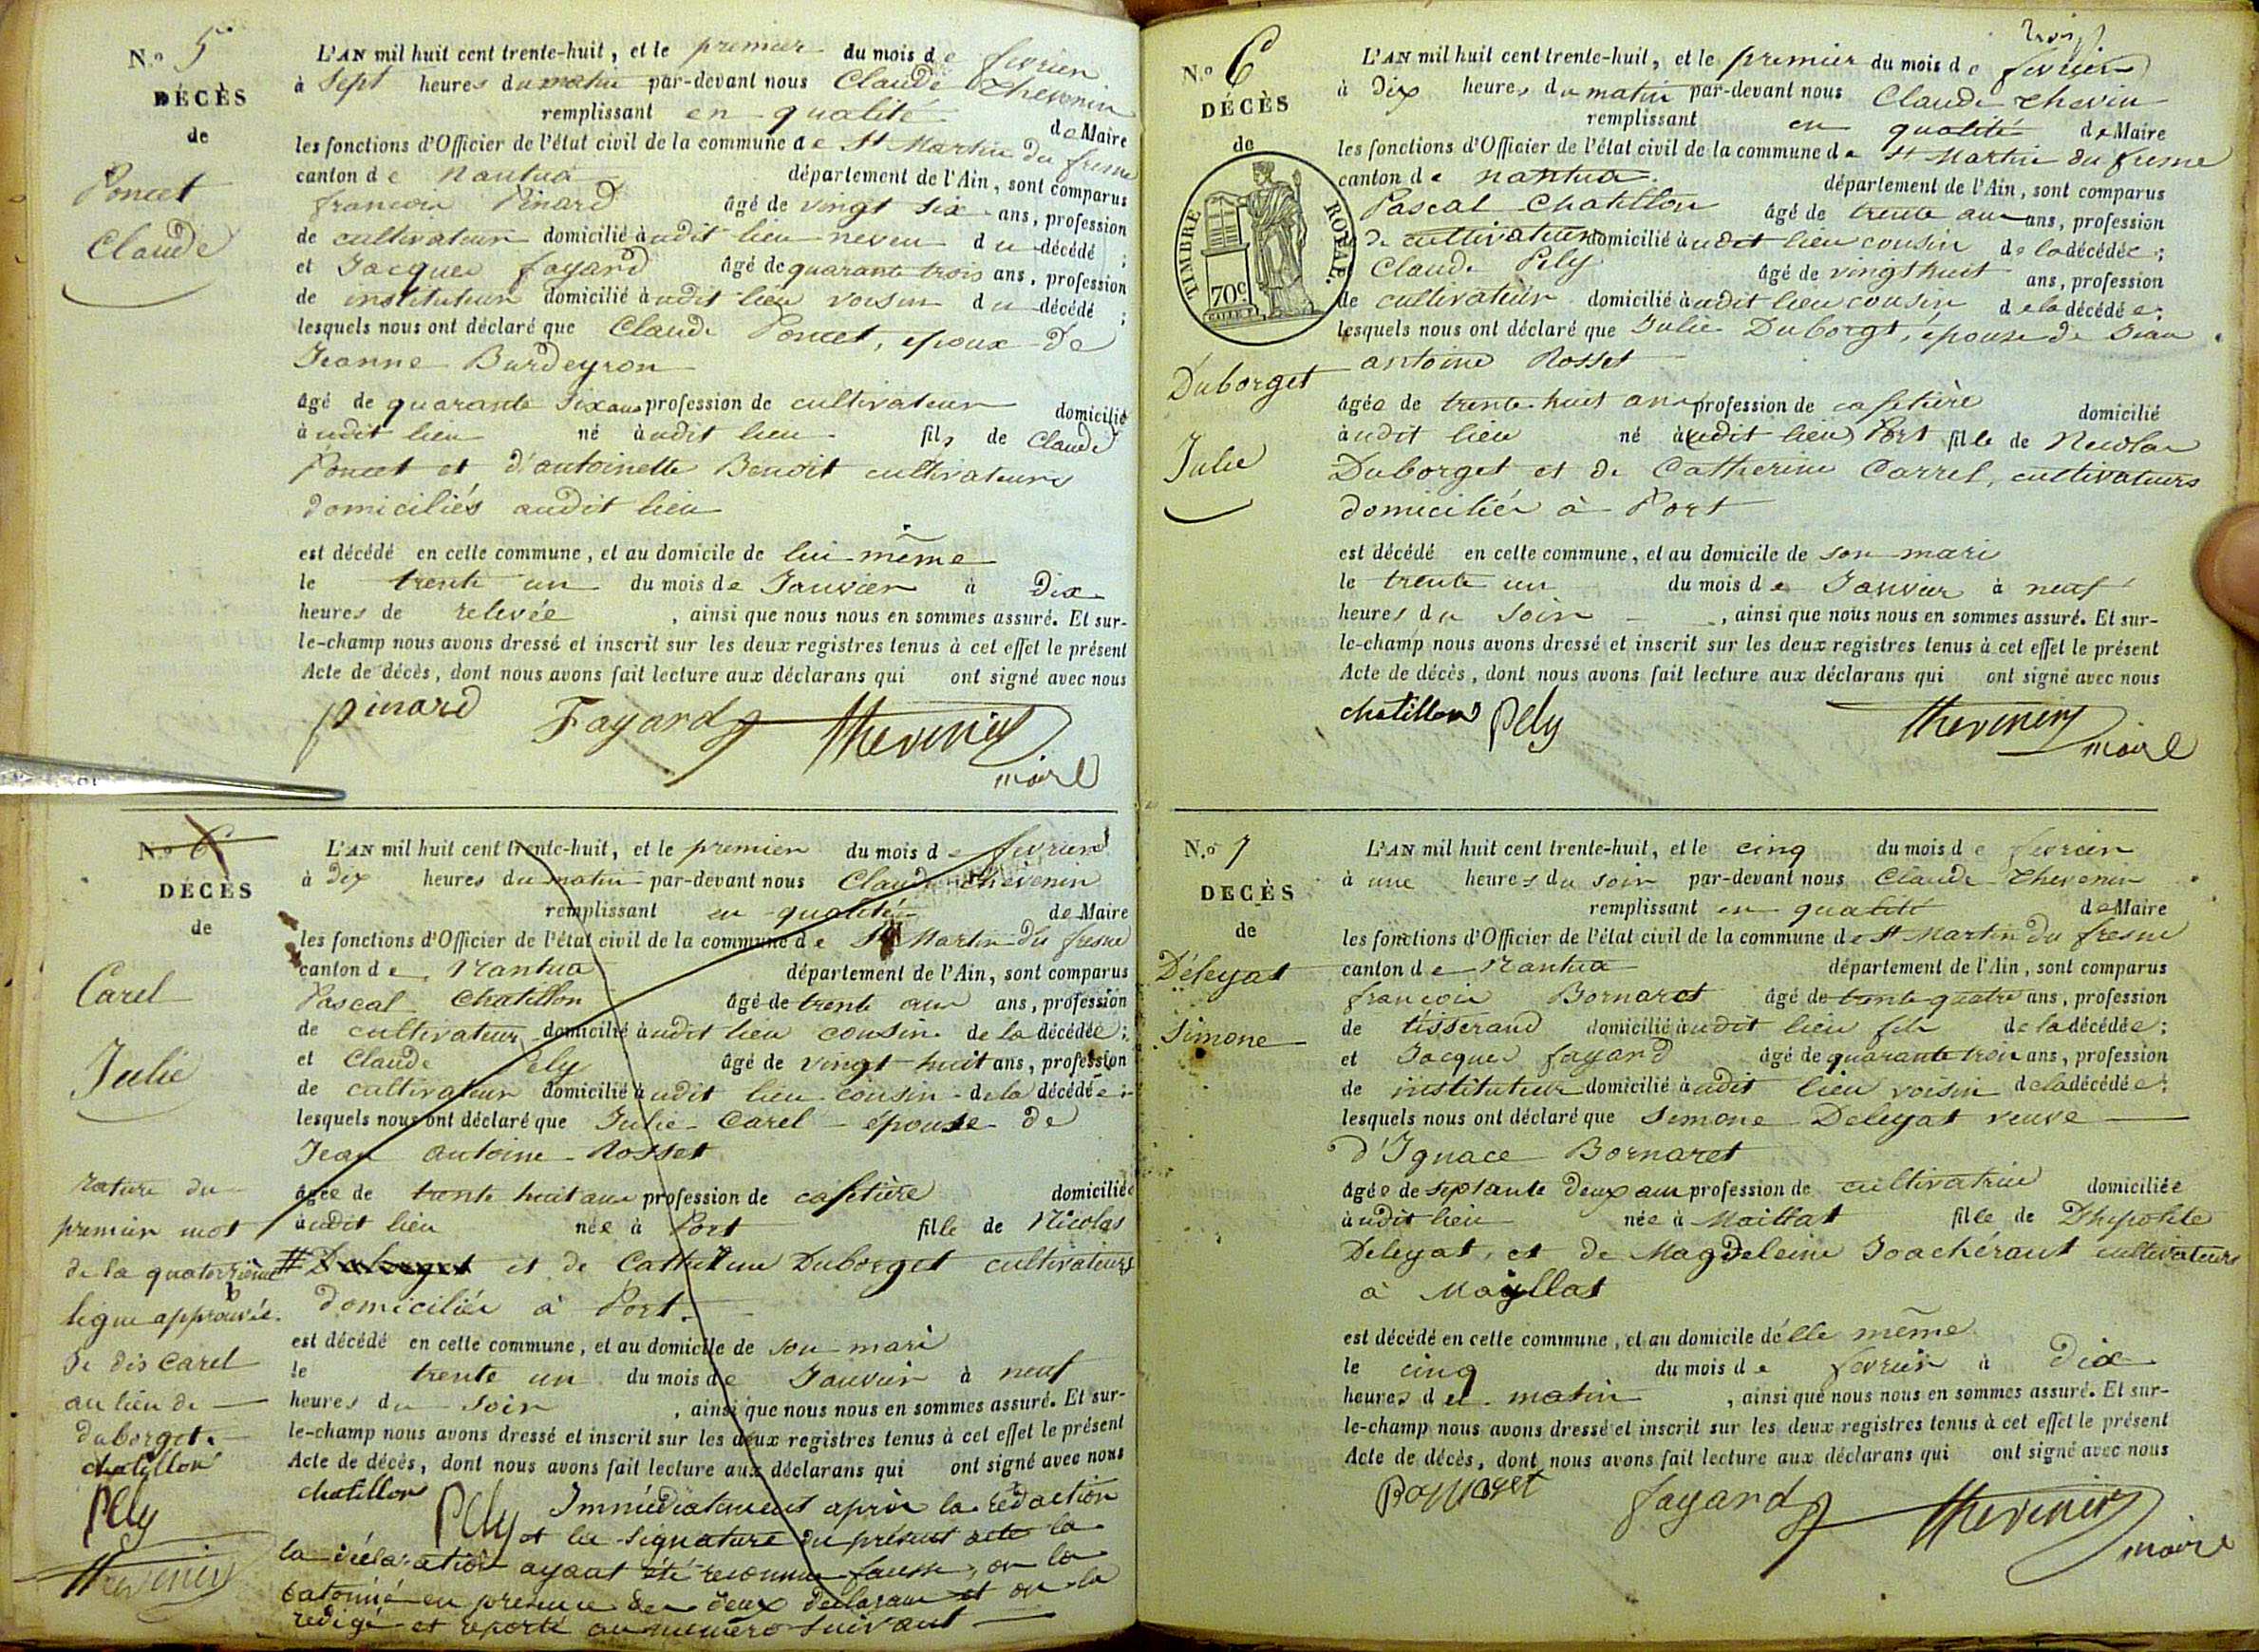 N.o 5
DÉCÈS
de
Poncet
Claude
L'AN mil huit cent trente-huit, et le premier du mois de fevrier
à Sept heures du matin par-devant nous Claude Thevenin
remplissant en qualité de Maire
les fonctions d'Officier de l'état civil de la commune de St Martin du fresne
canton de Nantua département de l'Ain, sont comparus
francois Pinard âgé de vingt six ans, profession
de cultivateur domicilié audit lieu neveu du décédé ;
et Jacques fayard âgé de quarante trois ans, profession
de instituteur domicilié audit lieu voisin du décédé ;
lesquels nous ont déclaré que Claude Poncet, epoux de
Jeanne Burdeyron
âgé de quarante six ans profession de cultivateur domicilié
audit lieu né audit lieu fils de Claude
Poncet et d'antoinette Benoit cultivateurs
domiciliés audit lieu
est décédé en cette commune, et au domicile de lui même
le trente un du mois de Janvier à Dix
heures de relevée , ainsi que nous nous en sommes assuré. Et sur-
le-champ nous avons dressé et inscrit sur les deux registres tenus à cet effet le présent
Acte de décès, dont nous avons fait lecture aux déclarans qui ont signé avec nous
pinard Fayard Thevenin
maire
N.o 6
DÉCÈS
de
Carel
Julie
L'AN mil huit cent trente-huit, et le premier du mois de fevrier
à dix heures du matin par-devant nous Claude Thevenin
remplissant en qualité de Maire
les fonctions d'Officier de l'état civil de la commune de St Martin du fresne
canton de Nantua département de l'Ain, sont comparus
Pascal Chatillon âgé de trente ans ans, profession
de cultivateur domicilié audit lieu cousin de la décédée ;
et Claude Pely âgé de vingt huit ans, profession
de cultivateur domicilié audit lieu cousin de la décédée ;
lesquels nous ont déclaré que Julie Carel épouse de
Jean antoine Rosset
âgée de trente huit ans profession de cafetière domiciliée
audit lieu née à Port fille de Nicolas
# Duborget et de Catherine Duborget cultivateurs
domiciliés à Port.
est décédé en cette commune, et au domicile de son mari
le trente un du mois de Janvier à neuf
heures du soir , ainsi que nous nous en sommes assuré. Et sur-
le-champ nous avons dressé et inscrit sur les deux registres tenus à cet effet le présent
Acte de décès, dont nous avons fait lecture aux déclarans qui ont signé avec nous
chatillon Pely Immédiatement après la rédaction
et la signature du présent acte la
la déclaration ayant été reconnue fausse, on la
batonné en presence des deux declarans et on la
redigé et reporté au numero suivant
rature du
premier mot
de la quatorzième
ligne approuvée.
Je dis Carel
au lieu de
duborget.
chatillon
Pely
Thevenin
trois
N.o 6
DÉCÈS
de
TIMBRE ROYAL
70c
Duborget
Julie
L'AN mil huit cent trente-huit, et le premier du mois de fevrier
à dix heures du matin par-devant nous Claude Thevin
remplissant en qualité de Maire
les fonctions d'Officier de l'état civil de la commune de St Martin du fresne
canton de nantua. département de l'Ain, sont comparus
Pascal Chatillon âgé de trente ans ans, profession
de cultivateur domicilié audit lieu cousin de la décédée ;
Claude Pely âgé de vingt huit ans, profession
de cultivateur domicilié audit lieu cousin de la décédée ;
lesquels nous ont déclaré que Julie Duborgt, épouse de Jean
antoine Rosset
âgée de trente-huit ans profession de cafetière domicilié
audit lieu né à (udit lieu) Port fille de Nicolas
Duborget et de Catherine Carrel, cultivateurs
domiciliés à Port
est décédé en cette commune, et au domicile de son mari
le trente un du mois de Janvier à neuf
heures du soir , ainsi que nous nous en sommes assuré. Et sur-
le-champ nous avons dressé et inscrit sur les deux registres tenus à cet effet le présent
Acte de décès, dont nous avons fait lecture aux déclarans qui ont signé avec nous
chatillon Pely Thevenin
maire
N.o 7
DÉCÈS
de
Déleyat
Simone
L'AN mil huit cent trente-huit, et le cinq du mois de fevrier
à une heures du soir par-devant nous Claude Thevenin
remplissant en qualité de Maire
les fonctions d'Officier de l'état civil de la commune de St Martin du fresne
canton de Nantua département de l'Ain, sont comparus
francois Bornaret âgé de trente quatre ans, profession
de tisserand domicilié audit lieu fils de la décédée ;
et Jacques fayard âgé de quarante trois ans, profession
de instituteur domicilié audit lieu voisin de la décédée ;
lesquels nous ont déclaré que Simone Deleyat veuve
d'Ignace Bornaret
âgée de septante deux ans profession de cultivatrice domiciliée
audit lieu née à Maillat fille de Dhypolite
Deleyat, et de Magdeleine Joachérant cultivateurs
à Mayllat
est décédé en cette commune, et au domicile d'elle même
le cinq du mois de fevrier à dix
heures du matin , ainsi que nous nous en sommes assuré. Et sur-
le-champ nous avons dressé et inscrit sur les deux registres tenus à cet effet le présent
Acte de décès, dont nous avons fait lecture aux déclarans qui ont signé avec nous
Bornaret fayard Thevenin
maire